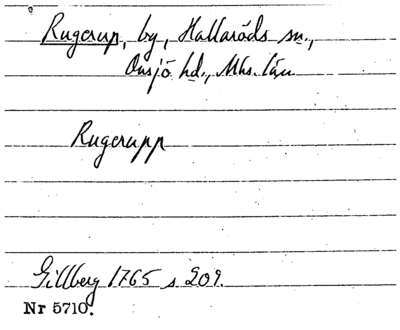 Rugerup, by, Hallaröds sn.,
Onsjö hd., Mhs. län
Rugerupp
Gillberg 1765 s 209.
Nr 5710.